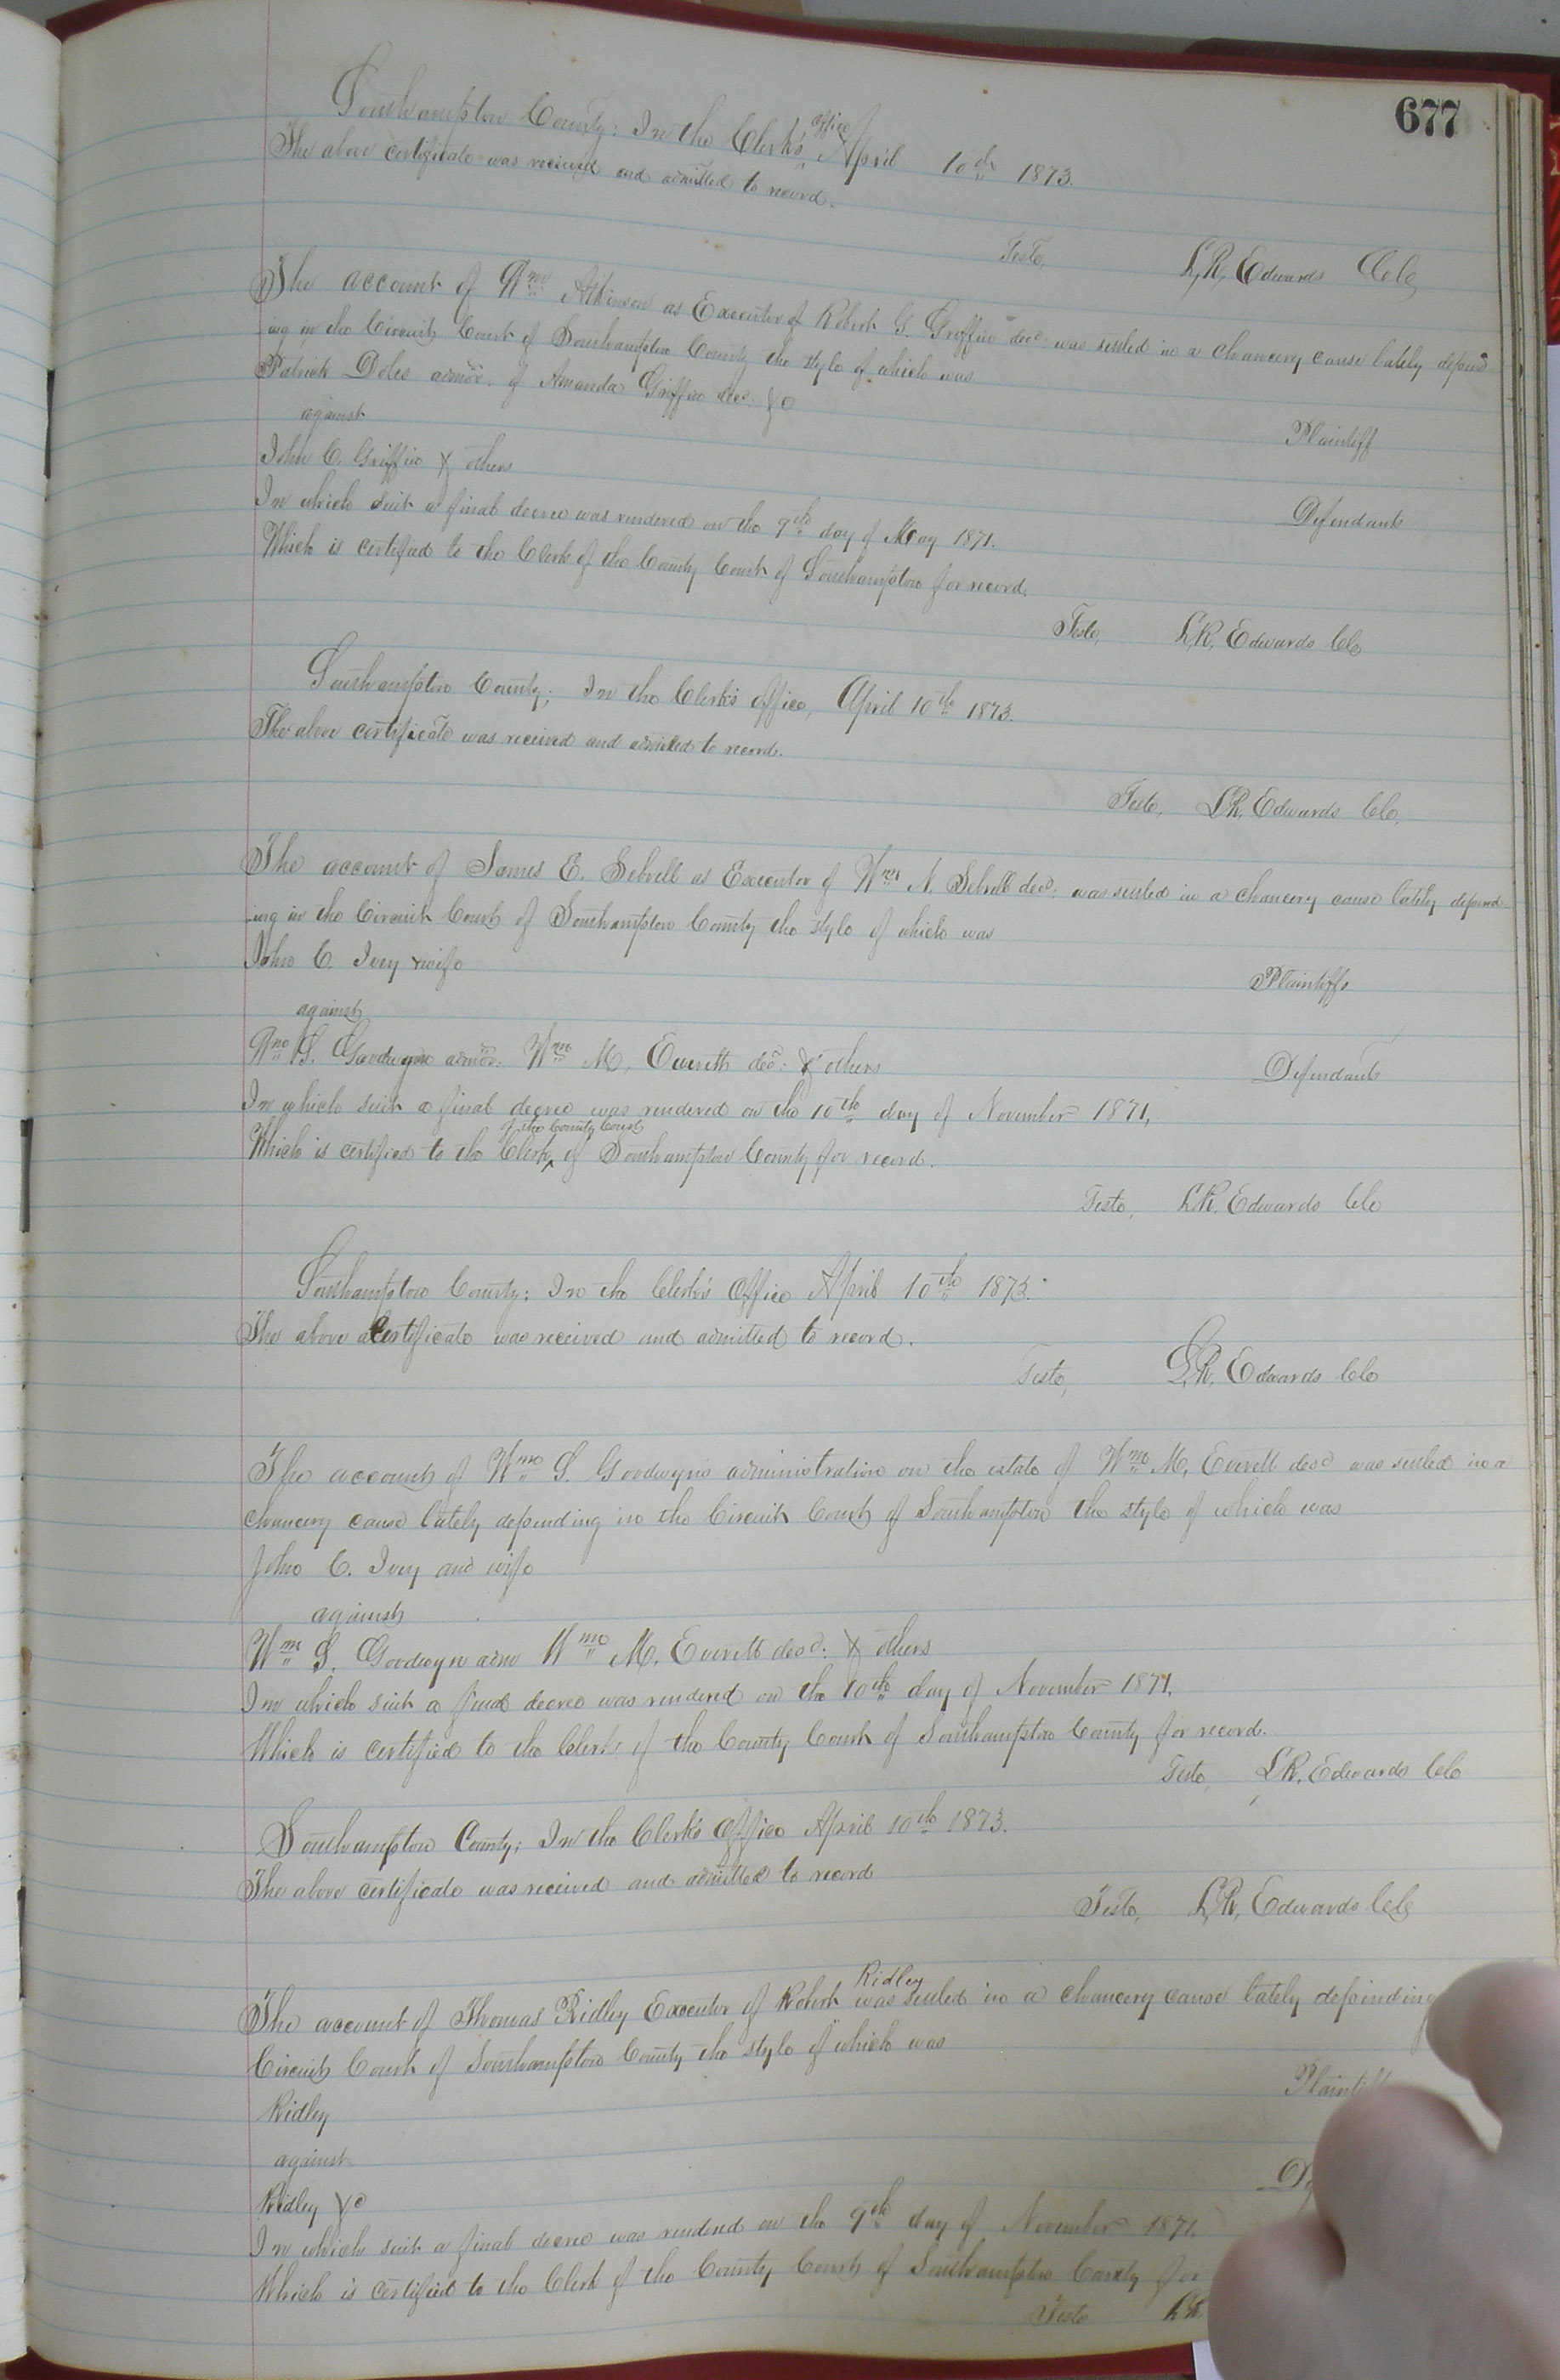 677
Southampton County: In the Clerk's office April 10th 1873.
The above certificate was received and admitted to record.
Teste, L, R, Edwards Clc
The account of Wm Atkinson as Executor of Robert G. Griffin decd. was settled in a chancery cause lately depend
ing in the Circuit Court of Southampton County the style of which was
Patrick Doles admor. of Amanda Griffin decd. &c
Plaintiff
against
John C. Griffin & others
Defendants
In which suit a final decree was rendered on the 9th day of May 1871.
Which is certified to the Clerk of the County Court of Southampton for record.
Teste, L.R. Edwards Clc
Southampton County; In the Clerk's office, April 10th 1873.
The above certificate was received and admitted to record.
Teste, L.R. Edwards Clc.
The account of James E. Sebrell as Executor of Wm N. Sebrell decd. was settled in a chancery cause lately depend
ing in the Circuit Court of Southampton County the style of which was
John C. Ivey & wife
Plaintiffs
against
Wm S. Goodwyn admor. Wm M. Everett decd: & others
Defendants
In which suit a final decree was rendered on the 10th day of November 1871,
Which is certified to the Clerk of the County Court of Southampton County for record.
Teste, L.R. Edwards Clc
Southampton County; In the Clerk's Office April 10th 1873.
The above certificate was received and admitted to record.
Teste, L.R. Edwards Clc
The account of Wm S. Goodwyns administration on the estate of Wm M, Everett decd was settled in a
chancery cause lately depending in the Circuit Court of Southampton the style of which was
John C. Ivey and wife
against
Wm S. Goodwyn adm Wm M. Everett decd: & others
In which suit a final decree was rendered on the 10th day of November 1871,
Which is certified to the Clerk of the County Court of Southampton County for record.
Teste, L.R. Edwards Clc
Southampton County; In the Clerk's Office April 10th 1873.
The above certificate was received and admitted to record
Teste, L,R, Edwards Clc
The account of Thomas Ridley Executor of Robert Ridley was settled in a chancery cause lately depending
Circuit Court of Southampton County the style of which was
Ridley
Plaintiff
against
Ridley &c
In which suit a final decree was rendered on the 9th day of November 1871.
Which is certified to the Clerk of the County Court of Southampton County for
Teste L.R.